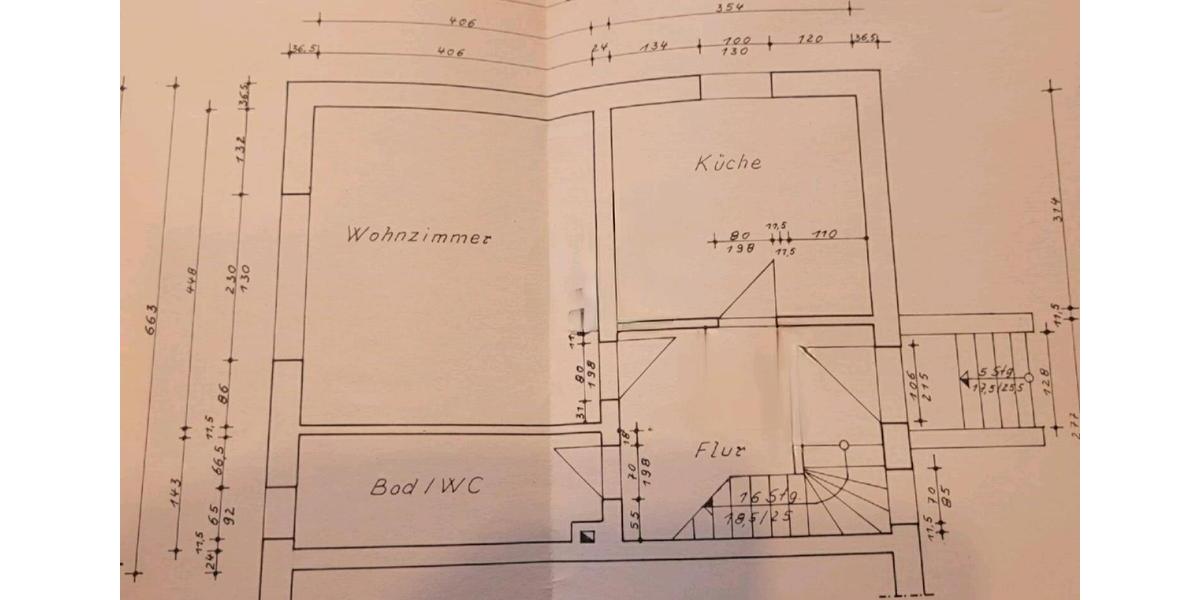 354
406
36,5
406
24
134
100
130
120
36,5
36,5
132
Küche
314
Wohnzimmer
80
198
11,5
11,5
110
448
230
130
663
11,5
80
198
106
215
5 Stg.
17,5/25,5
128
86
31
277
11,5
18
Flur
66,5
70
198
Bad/WC
143
16 Stg.
18,5/25
70
85
65
92
55
11,5
11,5
24